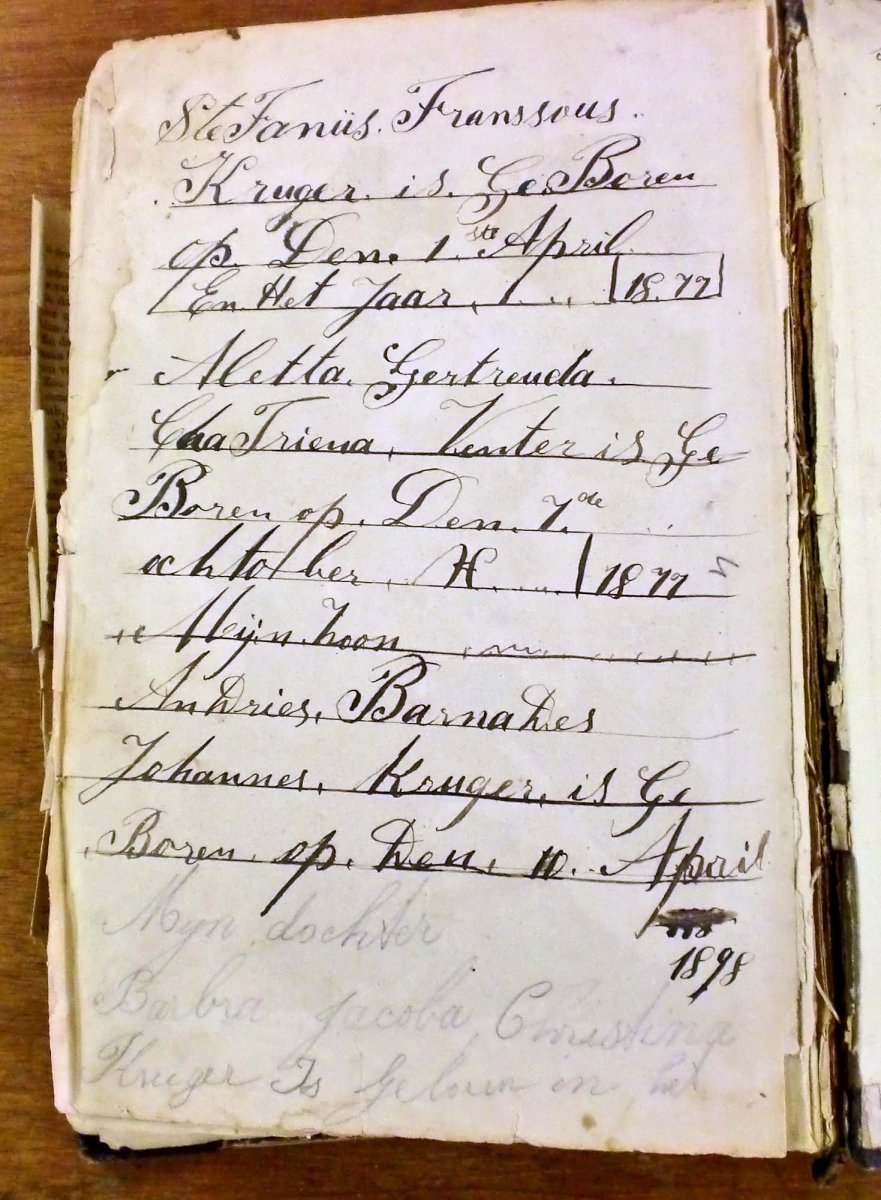 SteFaniis. Franssous.
Kruger. is. Ge.Boren
op. Den. 1.ste April.
En Het Jaar. 18.77
Aletta. Gertreuda.
ChaTriena, Venter is Ge
Boren op. Den. 7.de
ochtober. H. 1877
Mijn. Zoon
AnDries, BarnaDes
Johannes, Kruger, is Ge
Boren. op. Den. 10. April
1898
Myn dochter
Barbra Jacoba Christina
Kruger Is Geboren in het